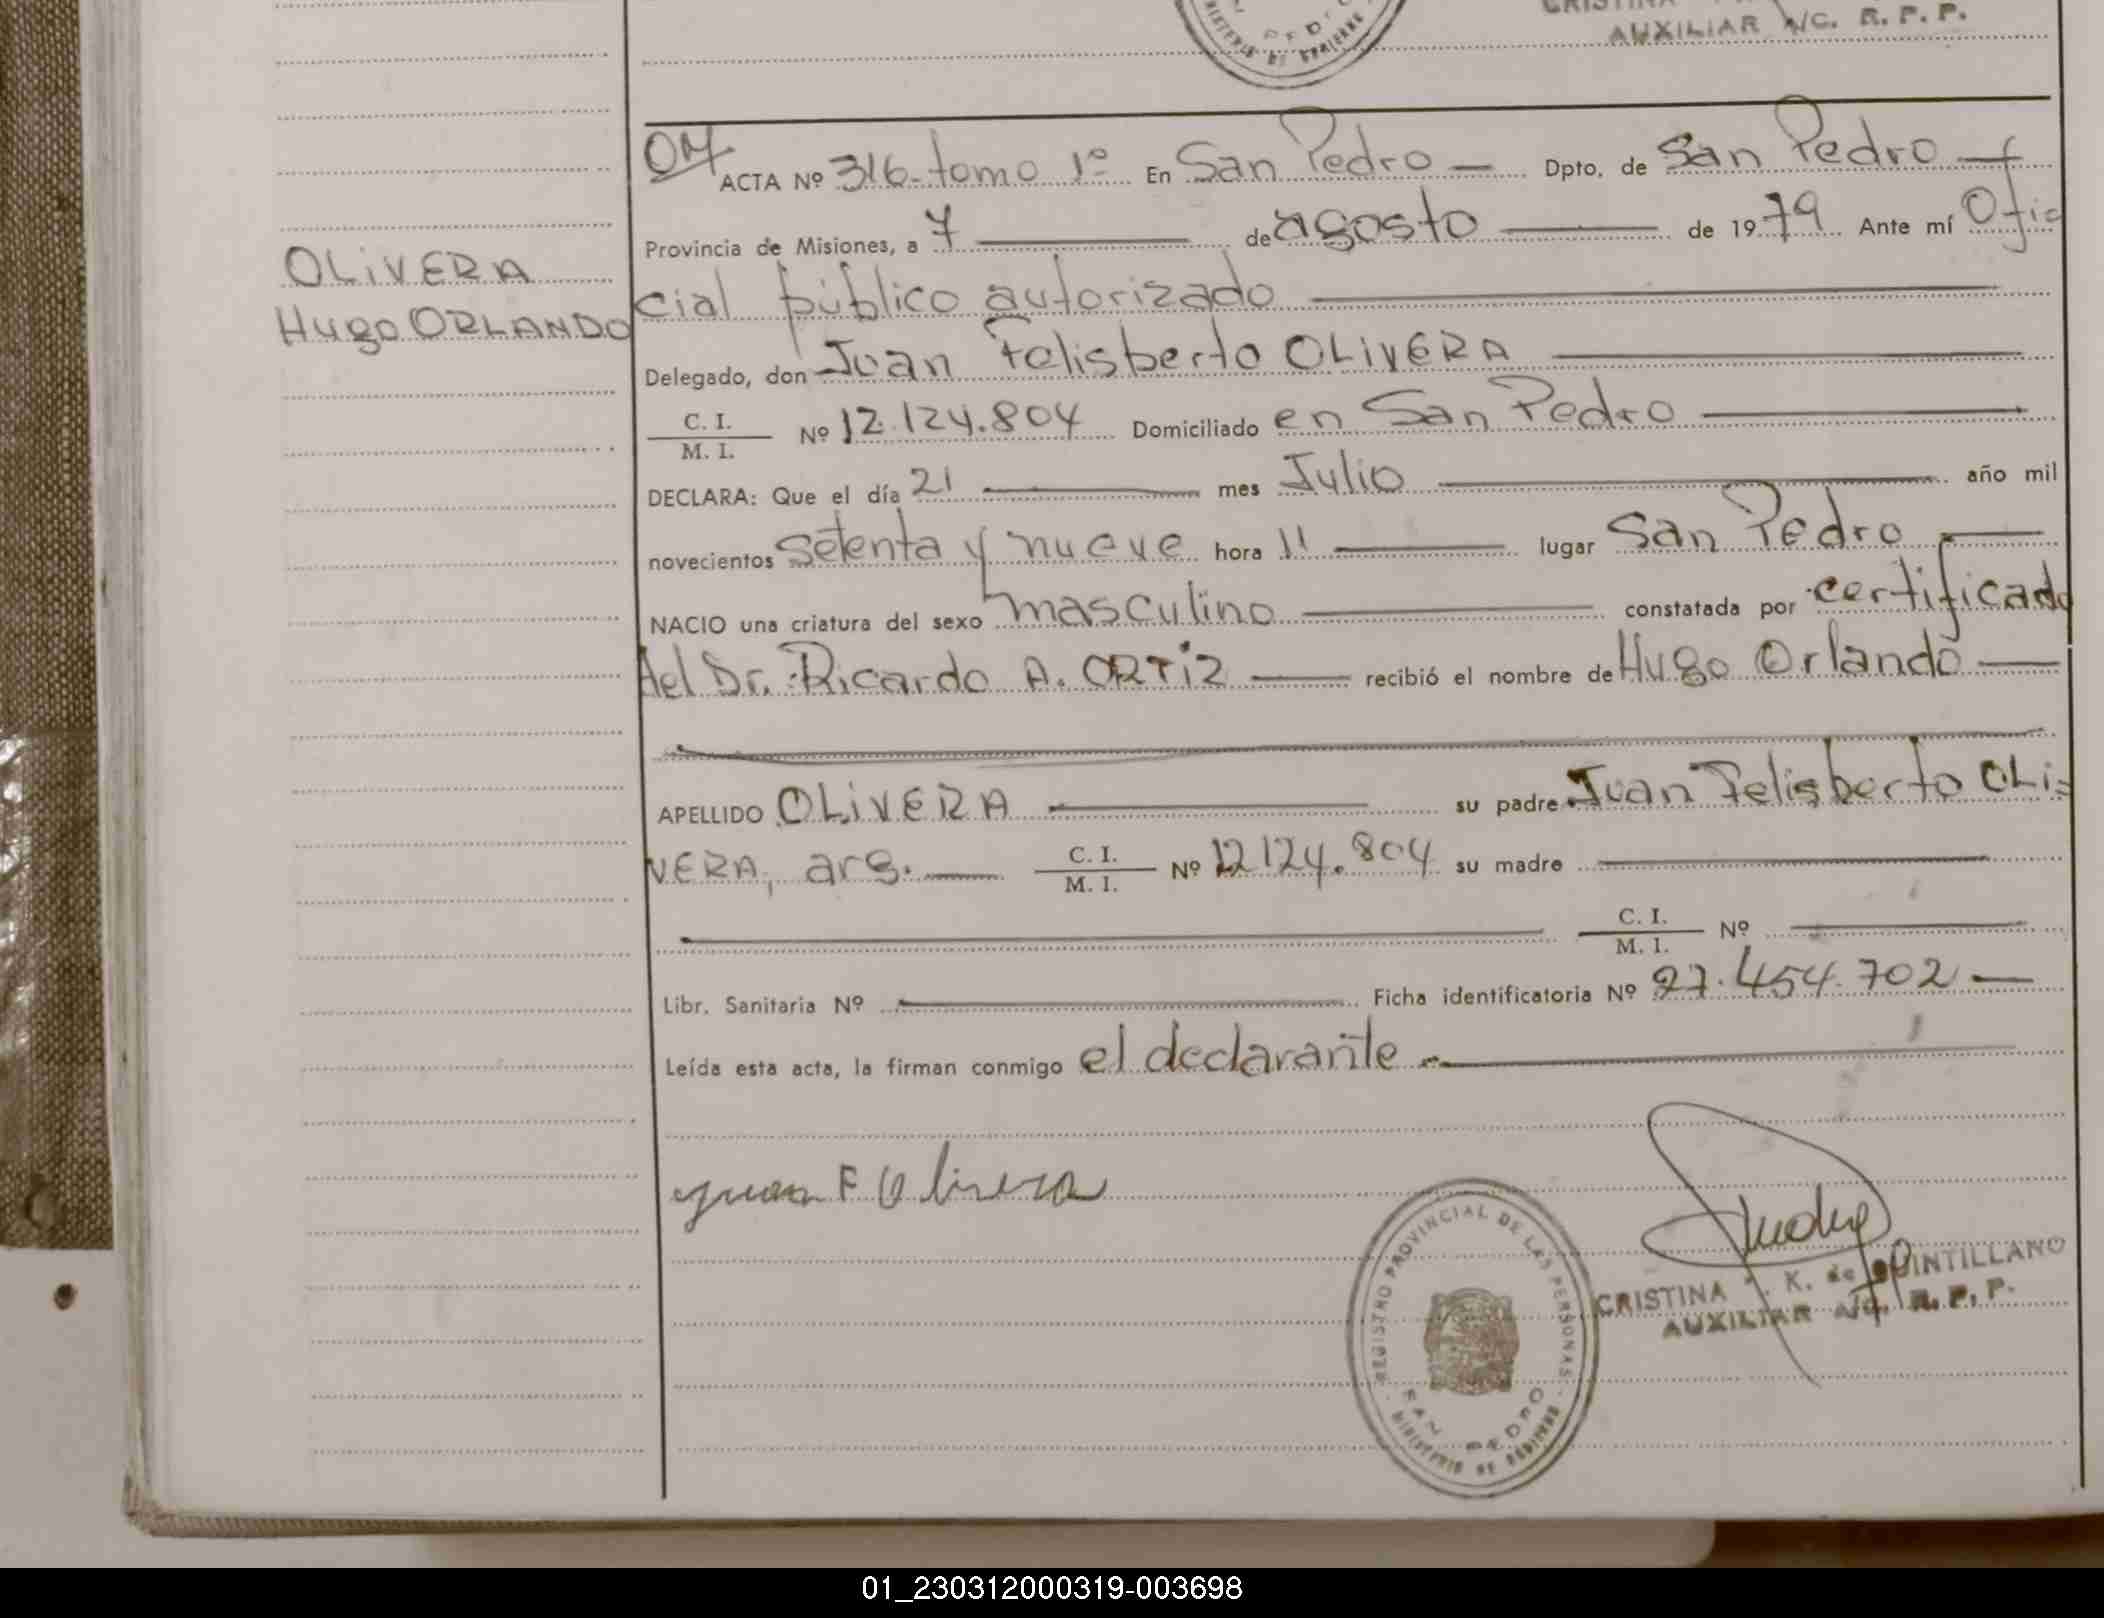 MINISTERIO DE GOBIERNO
PEDRO
CRISTINA
AUXILIAR A/C. R. P. P.
OM
ACTA Nº 316-tomo 1º En San Pedro — Dpto. de San Pedro —
Provincia de Misiones, a 7 — de agosto — de 1979 Ante mí Ofi
cial público autorizado —
OLIVERA
Hugo ORLANDO
Delegado, don Juan Felisberto OLIVERA —
C. I.
M. I. Nº 12.124.804 Domiciliado en San Pedro —
DECLARA: Que el día 21 — mes Julio — año mil
novecientos setenta y nueve hora 11 — lugar San Pedro —
NACIO una criatura del sexo masculino — constatada por certificado
del Dr. Ricardo A. ORTIZ — recibió el nombre de Hugo Orlando —
APELLIDO OLIVERA — su padre Juan Felisberto OLI=
VERA, arg. — C. I.
M. I. Nº 12124.804 su madre —
C. I.
M. I. Nº —
Libr. Sanitaria Nº — Ficha identificatoria Nº 27.454.702 —
Leída esta acta, la firman conmigo el declarante —
Juan F Olivera
REGISTRO PROVINCIAL DE LAS PERSONAS
SAN PEDRO
MINISTERIO DE GOBIERNO
CRISTINA K. de QUINTILLANO
AUXILIAR A/C. R. P. P.
01_230312000319-003698